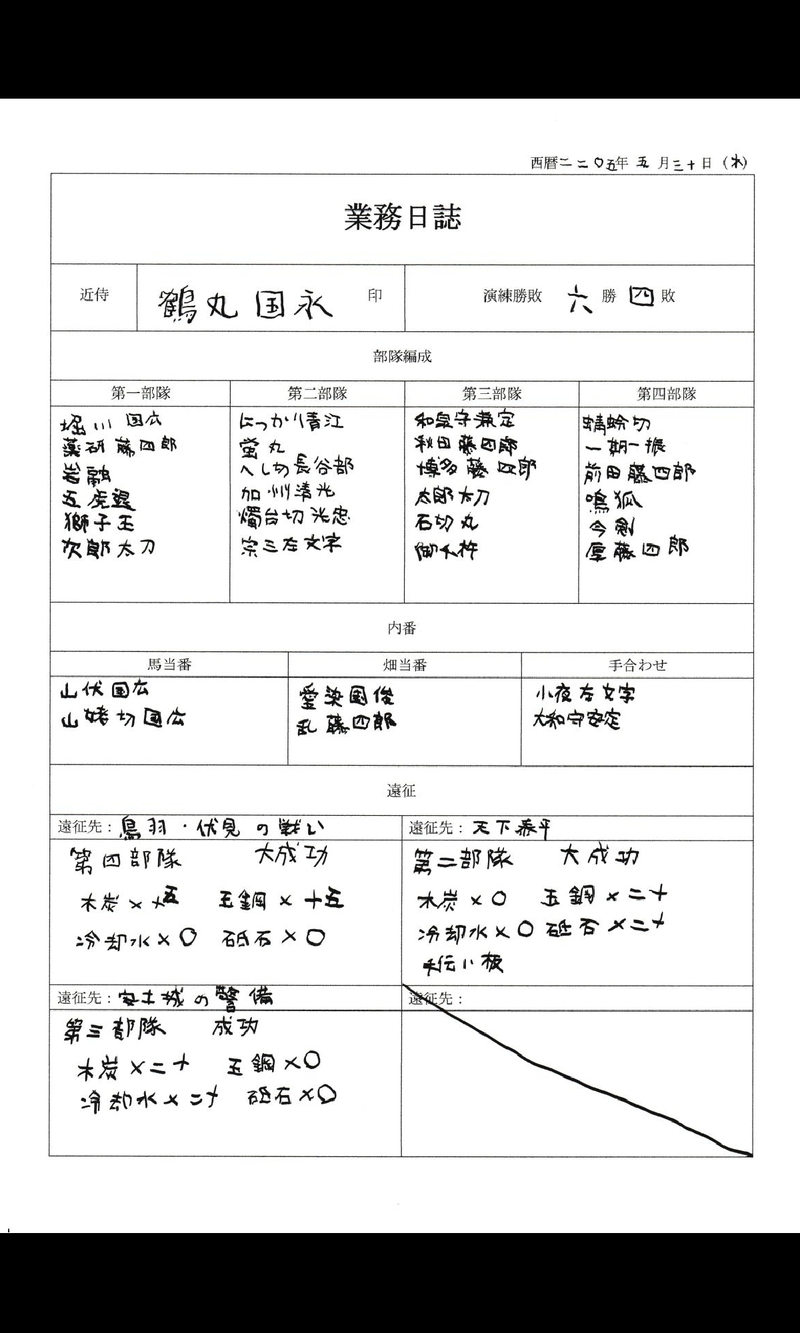 西暦二二〇五年 五 月 三十 日（水）
業務日誌
近侍 鶴丸国永 印 演練勝敗 六 勝 四 敗
部隊編成
第一部隊 第二部隊 第三部隊 第四部隊
堀川国広 にっかり青江 和泉守兼定 蜻蛉切
薬研藤四郎 蛍丸 秋田藤四郎 一期一振
岩融 へし切長谷部 博多藤四郎 前田藤四郎
五虎退 加州清光 太郎太刀 鳴狐
獅子王 燭台切光忠 石切丸 今剣
次郎太刀 宗三左文字 御手杵 厚藤四郎
内番
馬当番 畑当番 手合わせ
山伏国広 愛染国俊 小夜左文字
山姥切国広 乱藤四郎 大和守安定
遠征
遠征先：鳥羽・伏見の戦い
第四部隊 大成功
木炭×十五 玉鋼×十五
冷却水×〇 砥石×〇
遠征先：天下泰平
第二部隊 大成功
木炭×〇 玉鋼×二十
冷却水×〇 砥石×二十
手伝い板
遠征先：安土城の警備
第三部隊 成功
木炭×二十 玉鋼×〇
冷却水×二十 砥石×〇
遠征先：